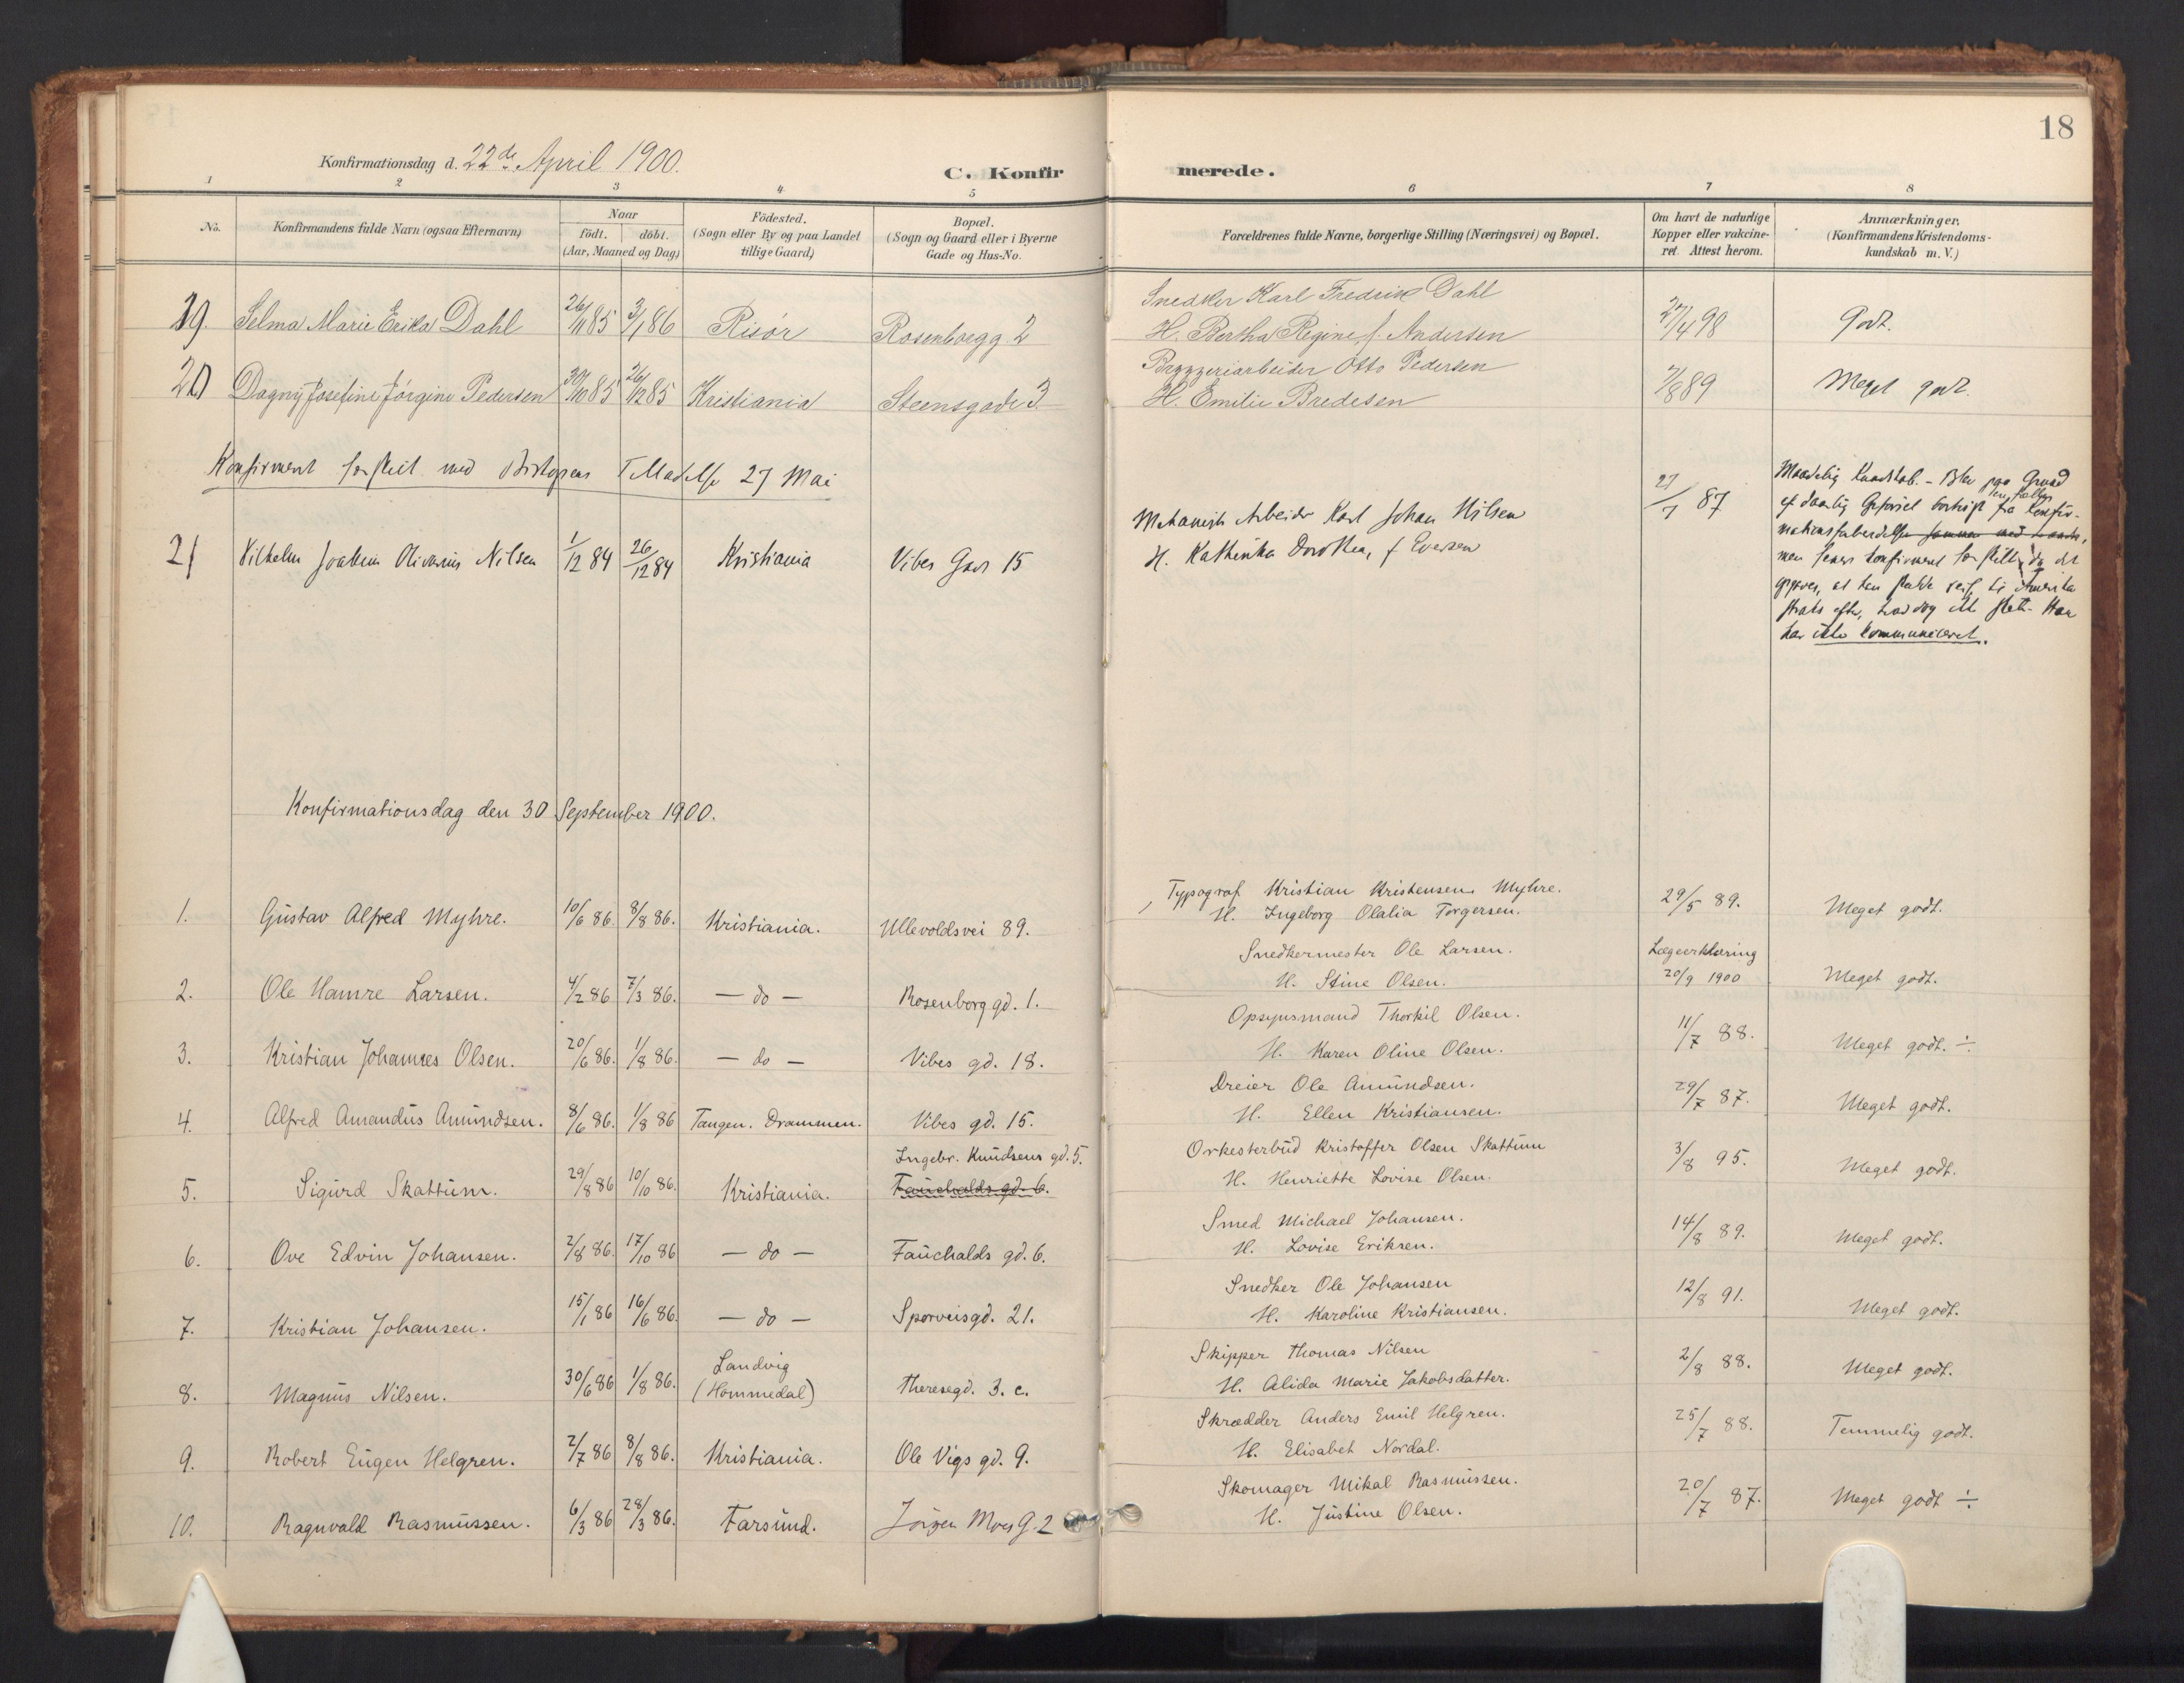 18
Konfirmationsdag d. 22de April 1900.
C. Konfirmerede.
1 2 3 4 5 6 7 8
No.
Konfirmandens fulde Navn (ogsaa Efternavn)
Naar
födt. döbt.
(Aar, Maaned og Dag)
Födested.
(Sogn eller By og paa Landet
tillige Gaard)
Bopæl.
(Sogn og Gaard eller i Byerne
Gade og Hus-No.
Forældrenes fulde Navne, borgerlige Stilling (Næringsvei) og Bopæl.
Om havt de naturlige
Kopper eller vakcine-
ret. Attest herom.
Anmærkninger.
(Konfirmandens Kristendoms-
kundskab m. V.)
19. Selma Marie Erika Dahl 26/11 85 3/1 86 Risör Rosenborgg. 2 Snedker Karl Fredrik Dahl 27/4 98 Godt.
H. Bertha Regine f. Andersen
20 Dagny Josefine Jörgine Pedersen 30/10 85 26/12 85 Kristiania Steensgade 3. Bryggeriarbeider Otto Pedersen 7/8 89 Meget godt.
H. Emilie Bredesen
Konfirmeret særskilt med Biskopens Tilladelse 27 Mai
21 Vilhelm Joakim Olivarius Nilsen 1/12 84 26/12 84 Kristiania Vibes Gade 15 Mekanisk Arbeider Karl Johan Nilsen 27/7 87
H. Kathinka Dorothea, f Eversen
Maadelig Kundskab. - Blev paa Grund
af daarlig Forhold bortvist fra Konfir-
mationsforberedelsen sammen med
men senere konfirmeret særskilt, da det
at han skulde reise til Amerika
straks efter, hvad dog ikke skete. Han
har ikke kommuniceret.
Konfirmationsdag den 30 September 1900.
1. Gustav Alfred Myhre. 10/6 86. 8/8 86. Kristiania. Ullevoldsvei 89. Typograf Kristian Kristensen Myhre. 29/5 89. Meget godt.
H. Ingeborg Olalia Torgersen.
2. Ole Hamre Larsen. 4/2 86 7/3 86. — do — Rosenborg gd. 1. Snedkermester Ole Larsen. Lægeerklæring 20/9 1900 Meget godt.
H. Stine Olsen.
3. Kristian Johannes Olsen. 20/6 86. 1/8 86. — do — Vibes gd. 18. Opsynsmand Thorkil Olsen. 11/7 88. Meget godt. ÷
H. Karen Oline Olsen.
4. Alfred Amandus Amundsen. 8/6 86. 1/8 86 Tangen. Drammen. Vibes gd. 15. Dreier Ole Amundsen. 29/7 87. Meget godt.
H. Ellen Kristiansen.
Ingebr. Knudsens gd. 5.
5. Sigurd Skattum. 29/8 86 10/10 86. Kristiania. Fauchalds gd. 6. Orkesterbud Kristoffer Olsen Skattum 3/8 95. Meget godt.
H. Henriette Lovise Olsen.
6. Ove Edvin Johansen. 2/8 86. 17/10 86 — do — Fauchalds gd. 6. Smed Michael Johansen. 14/8 89. Meget godt.
H. Lovise Eriksen.
7. Kristian Johansen. 15/1 86 16/6 86. — do — Sporveisgd. 21. Snedker Ole Johansen 12/8 91. Meget godt.
H. Karoline Kristiansen.
8. Magnus Nilsen. 30/6 86 1/8 86. Landvig (Hommedal) Theresegd. 3. c. Skipper Thomas Nilsen 2/8 88. Meget godt.
H. Alida Marie Jakobsdatter.
9. Robert Eugen Helgren. 2/7 86 8/8 86. Kristiania. Ole Vigs gd. 9. Skrædder Anders Emil Helgren. 25/7 88. Temmelig godt.
H. Elisabet Nordal.
10. Ragnvald Rasmussen. 6/3 86 28/3 86. Farsund. Jörgen Moes G. 2 Skomager Mikal Rasmussen. 20/7 87. Meget godt ÷
H. Justine Olsen.